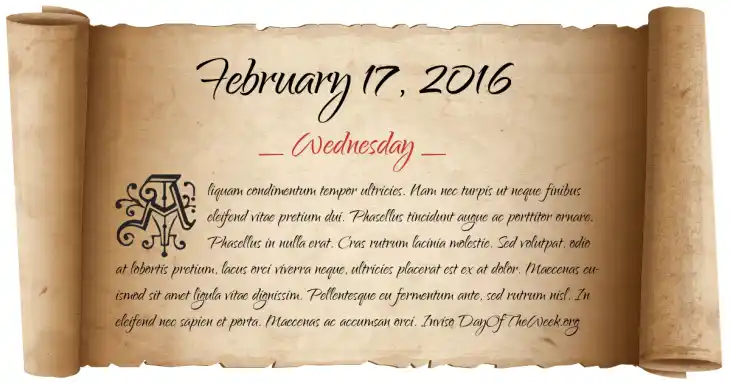 February 17, 2016
— Wednesday —
Aliquam condimentum tempor ultricies. Nam nec turpis ut neque finibus
eleifend vitae pretium dui. Phasellus tincidunt augue ac porttitor ornare.
Phasellus in nulla erat. Cras rutrum lacinia molestie. Sed volutpat, odio
at lobortis pretium, lacus orci viverra neque, ultricies placerat est ex at dolor. Maecenas eu-
ismod sit amet ligula vitae dignissim. Pellentesque eu fermentum ante, sed rutrum nisl. In
eleifend nec sapien et porta. Maecenas ac accumsan orci. Invisq DayOfTheWeek.org